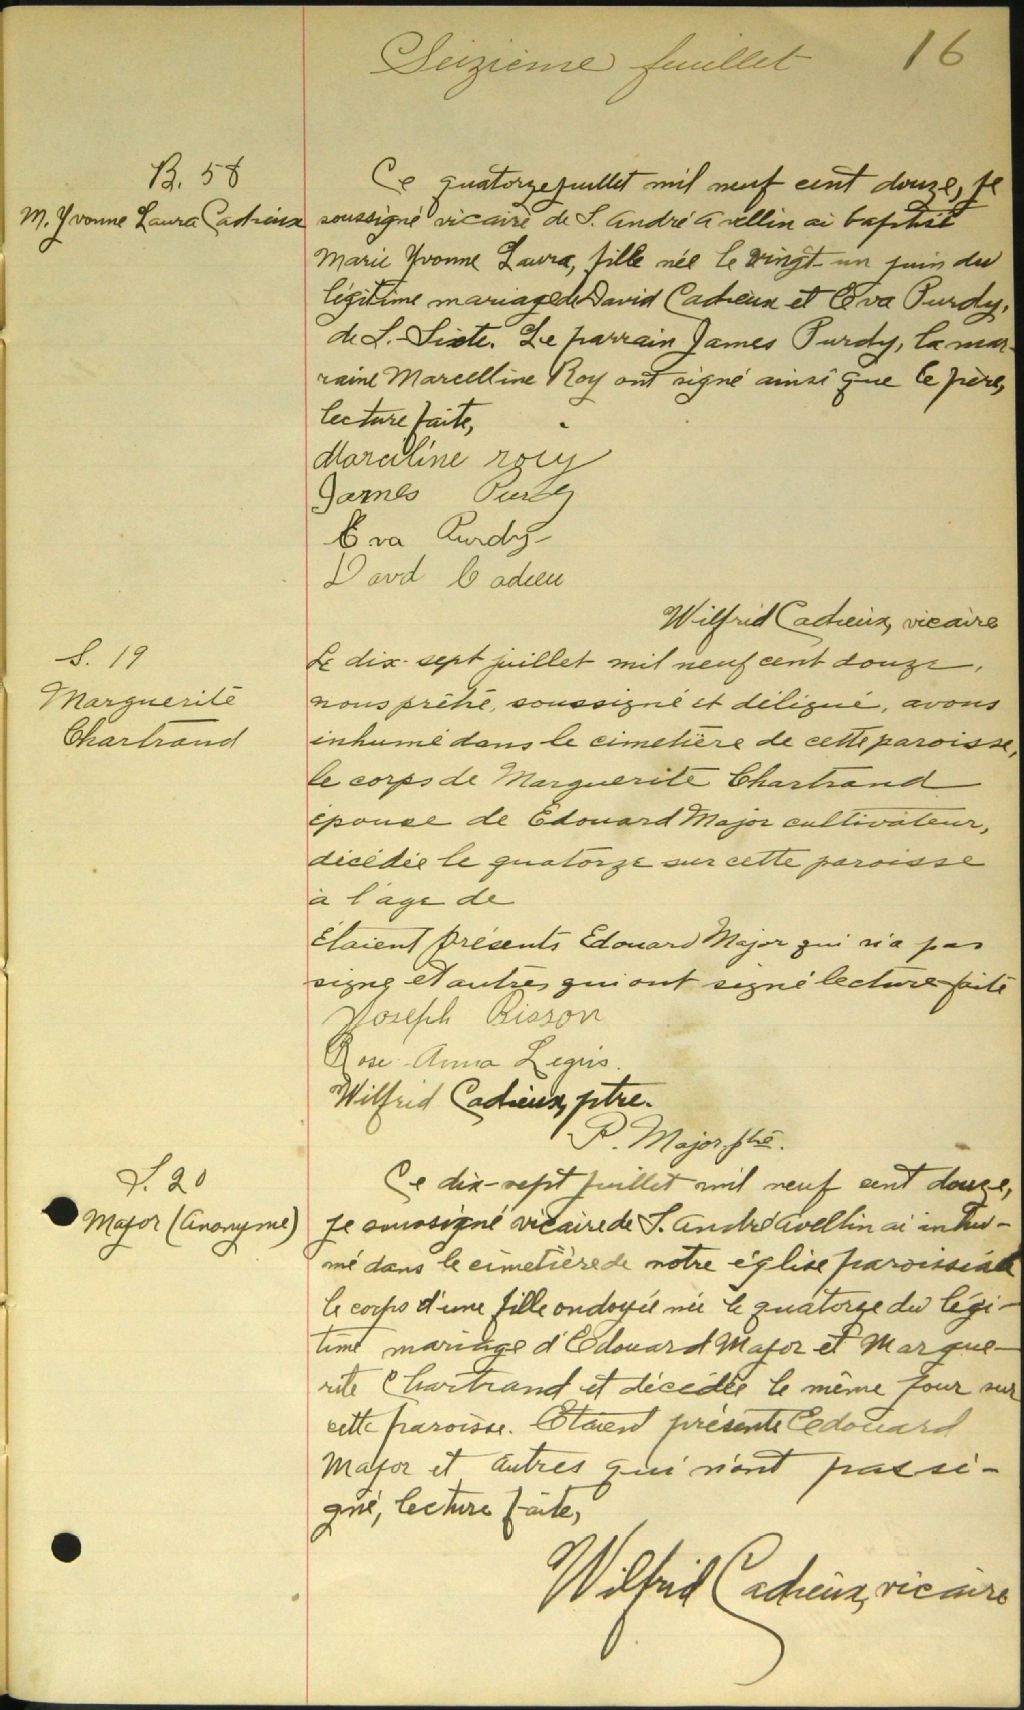 Seizième feuillet 16
B. 58
M. Yvonne Laura Cadieux
Ce quatorze juillet mil neuf cent douze, je
soussigné vicaire de S. André Avellin ai baptisé
Marie Yvonne Laura, fille née le vingt-un juin du
légitime mariage de David Cadieux et Eva Purdy,
de S.-Sixte. Le parrain James Purdy, la mar-
raine Marcelline Roy ont signé ainsi que le père,
lecture faite,
Marciline roiy
James Purdy
Eva Purdy
Davd Cadieu
Wilfrid Cadieux, vicaire
S. 19
Marguerite
Chartrand
Le dix-sept juillet mil neuf cent douze,
nous prêtre, soussigné et délégué, avons
inhumé dans le cimetière de cette paroisse,
le corps de Marguerite Chartrand
épouse de Edouard Major cultivateur,
décédée le quatorze sur cette paroisse
à l'age de
Étaient présents Edouard Major qui n'a pas
signé et autres qui ont signé lecture faite
Joseph Bisson
Rose-Anna Legris.
Wilfrid Cadieux, ptre.
P. Major ptre.
S. 20
Major (Anonyme)
Ce dix-sept juillet mil neuf cent douze,
je soussigné vicaire de S. André Avellin ai inhu-
mé dans le cimetière de notre église paroissiale
le corps d'une fille ondoyée née le quatorze du légi-
time mariage d'Edouard Major et Margue-
rite Chartrand et décédée le même jour sur
cette paroisse. Etaient présents Edouard
Major et autres qui n'ont pas si-
gné, lecture faite,
Wilfrid Cadieux, vicaire